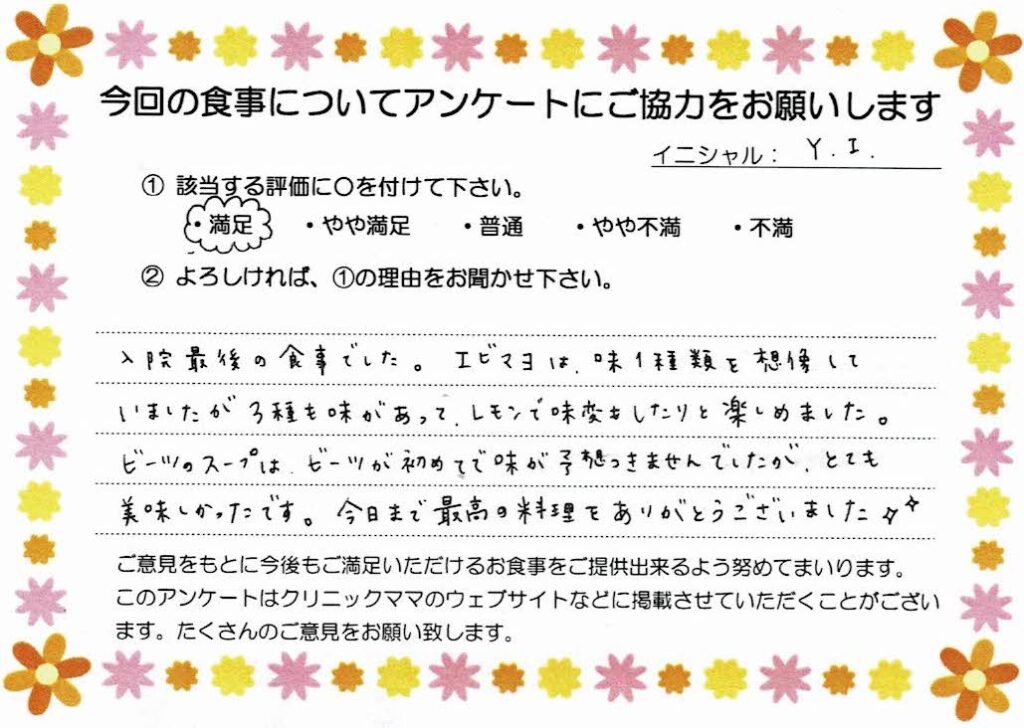 今回の食事についてアンケートにご協力をお願いします
イニシャル： Y.I.
① 該当する評価に〇を付けて下さい。
・満足 ・やや満足 ・普通 ・やや不満 ・不満
② よろしければ、①の理由をお聞かせ下さい。
入院最後の食事でした。エビマヨは、味1種類を想像して
いましたが3種も味があって、レモンで味変もしたりと楽しめました。
ビーツのスープは、ビーツが初めてで味が予想つきませんでしたが、とても
美味しかったです。今日まで最高の料理をありがとうございました
ご意見をもとに今後もご満足いただけるお食事をご提供出来るよう努めてまいります。
このアンケートはクリニックママのウェブサイトなどに掲載させていただくことがござい
ます。たくさんのご意見をお願い致します。